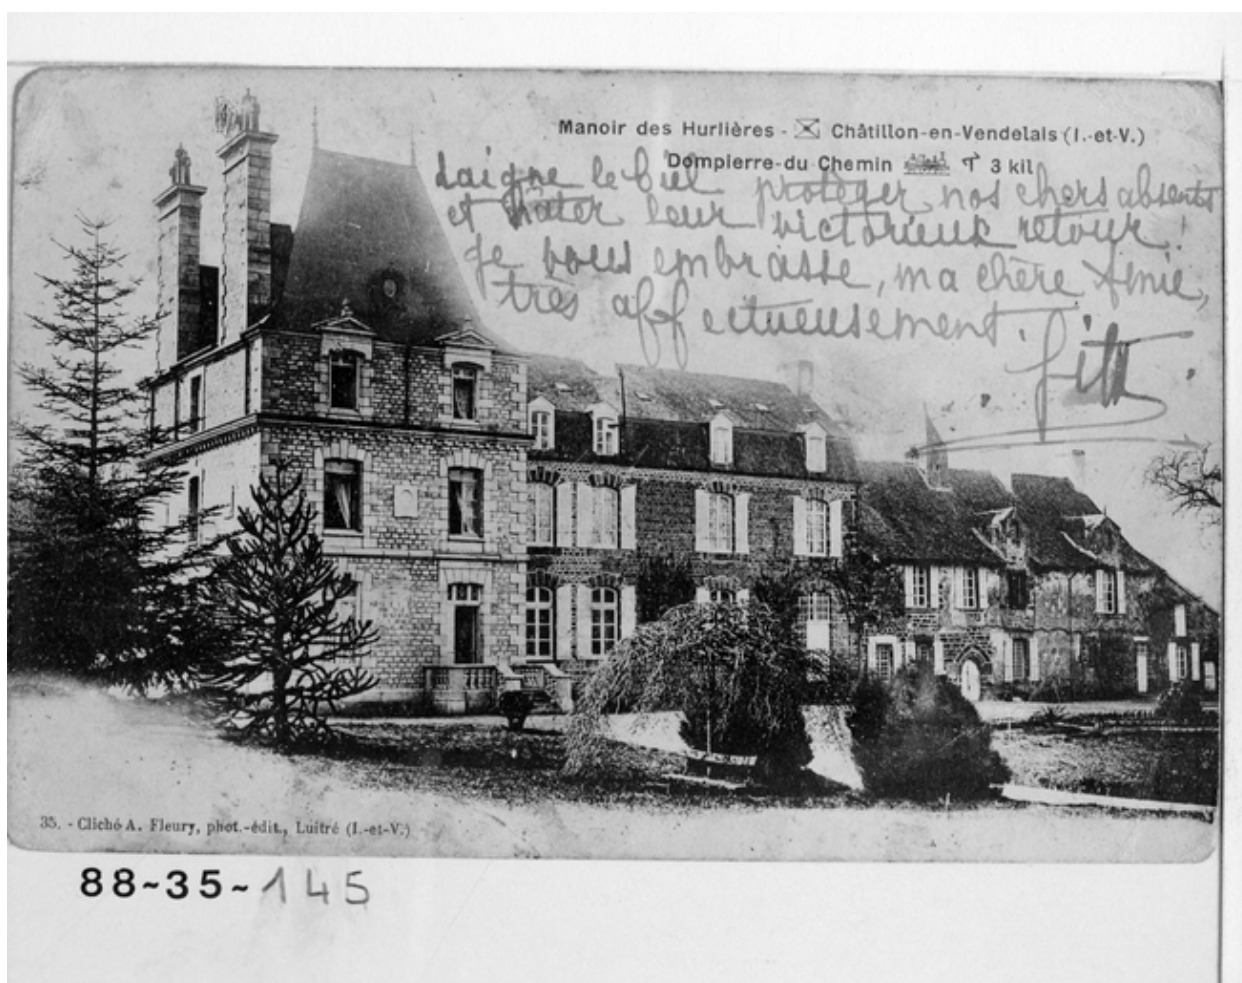 Manoir des Hurlières - Châtillon-en-Vendelais (I.-et-V.)
Dompierre-du-Chemin 3 kil
Daigne le Ciel protéger nos chers absents
et hâter leur victorieux retour!
Je vous embrasse, ma chère Amie,
très affectueusement.
35. - Cliché A. Fleury, phot.-édit., Luitré (I.-et-V.)
88-35-145